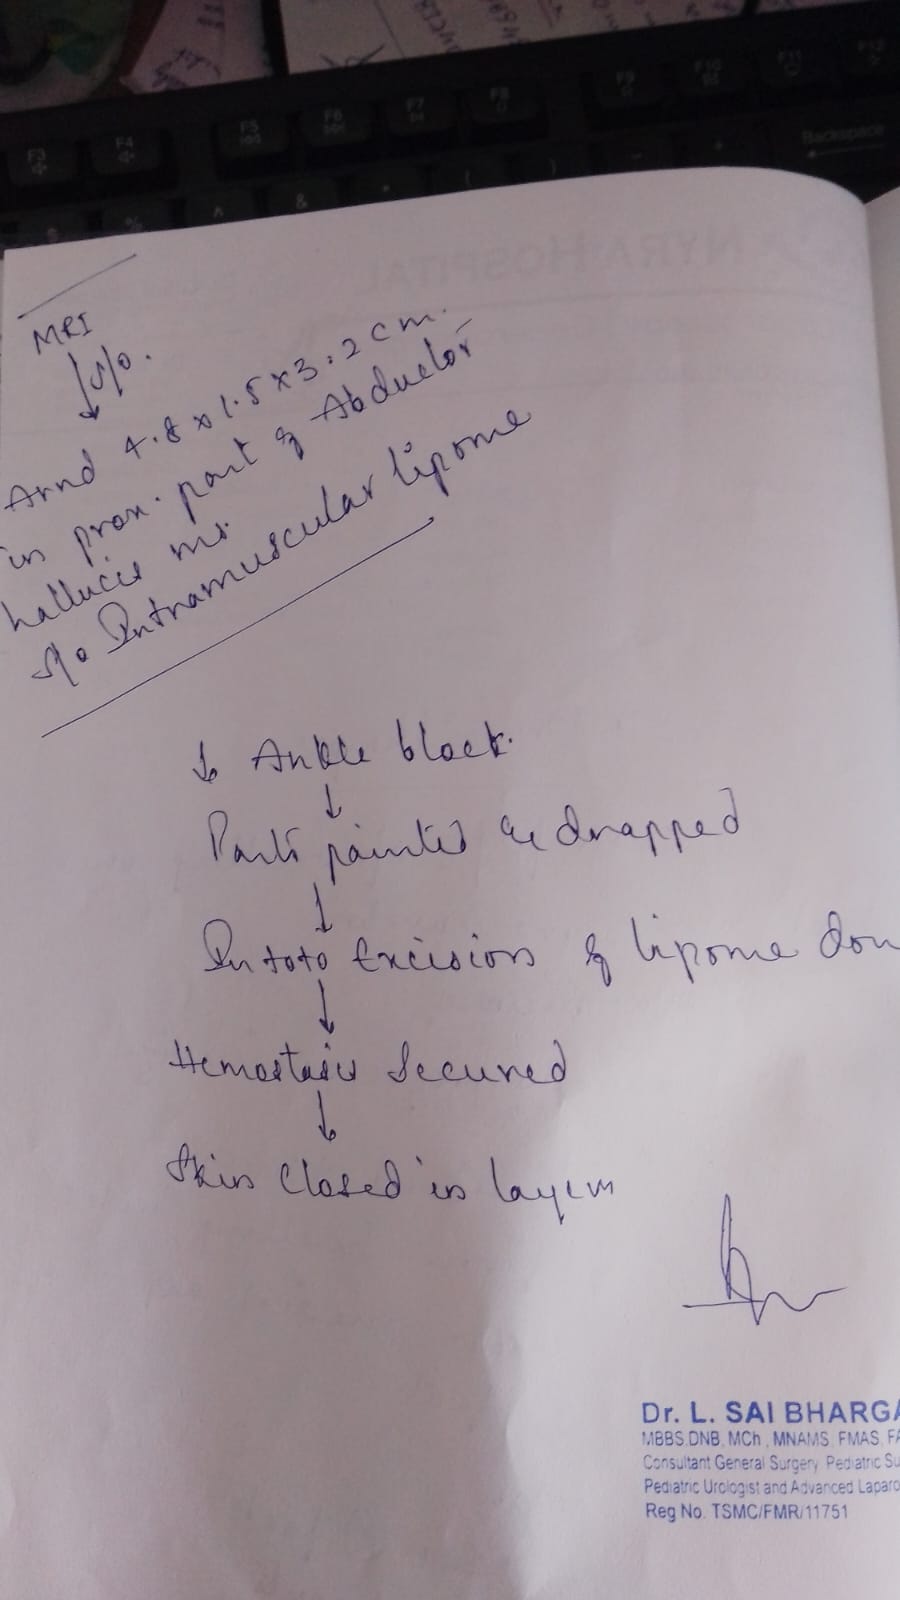 MRI
↓ s/o.
Arnd 4.8 x 1.5 x 3.2 cm.
in prox. part of Abductor
hallucis ms.
s/o Intramuscular lipoma
↓ Ankle block.
↓
Parts painted & drapped
↓
In toto Excision of lipoma don
↓
Hemostasis Secured
↓
Skin closed in layers
Dr. L. SAI BHARGA
MBBS, DNB, MCh, MNAMS, FMAS, FA
Consultant General Surgery, Pediatric Su
Pediatric Urologist and Advanced Laparo
Reg No. TSMC/FMR/11751
NYRA HOSPITAL
F3
F4
F5
F6
F7
F8
F9
F10
F11
F12
Backspace